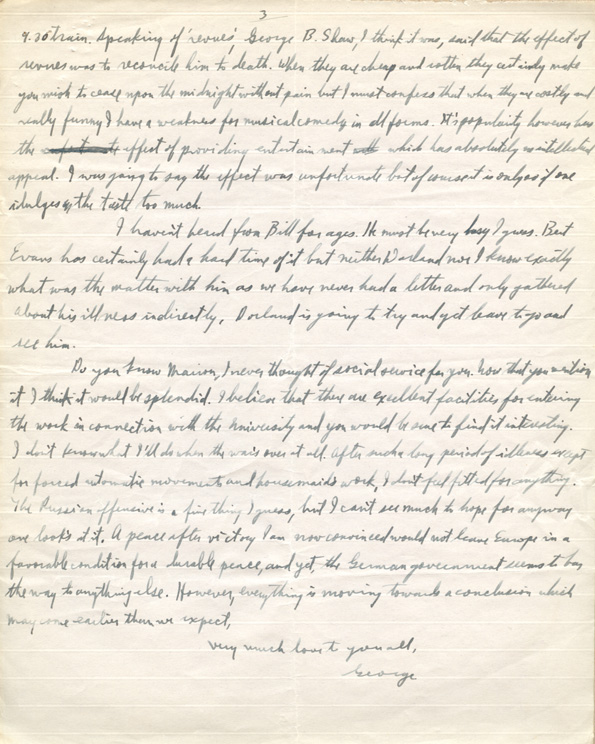 3
9.30 train. Speaking of 'revues', George B. Shaw, I think it was, said that the effect of
revues was to reconcile him to death. When they are cheap and rotten they certainly make
you wish to cease upon the midnight without pain but I must confess that when they are costly and
really funny I have a weakness for musical comedy in all forms. It's popularity however has
the effect of providing entertainment which has absolutely no intellectual
appeal. I was going to say the effect was unfortunate but of course it is only so if one
indulges the taste too much.
I havin't heard from Bill for ages. He must be very busy I guess. Bert
Evans has certainly had a hard time of it but neither Dorland nor I know exactly
what was the matter with him as we have never had a letter and only gathered
about his illness indirectly. Dorland is going to try and get leave to go and
see him.
Do you know Marion, I never thought of social service for you. Now that you mention
it I think it would be splendid. I believe that there are excellent facilities for entering
the work in connection with the University and you would be sure to find it interesting.
I don't know what I'll do when the war is over at all. After such a long period of illness except
for forced automatic movements and housemaid's work, I don't feel fitted for anything.
The Russian offensive is a fine thing I guess, but I can't see much to hope for anyway
one looks at it. A peace after victory I am now convinced would not leave Europe in a
favorable condition for a durable peace, and yet, the German government seems to bar
the way to anything else. However, everything is moving towards a conclusion which
may come earlier than we expect,
very much love to you all,
George